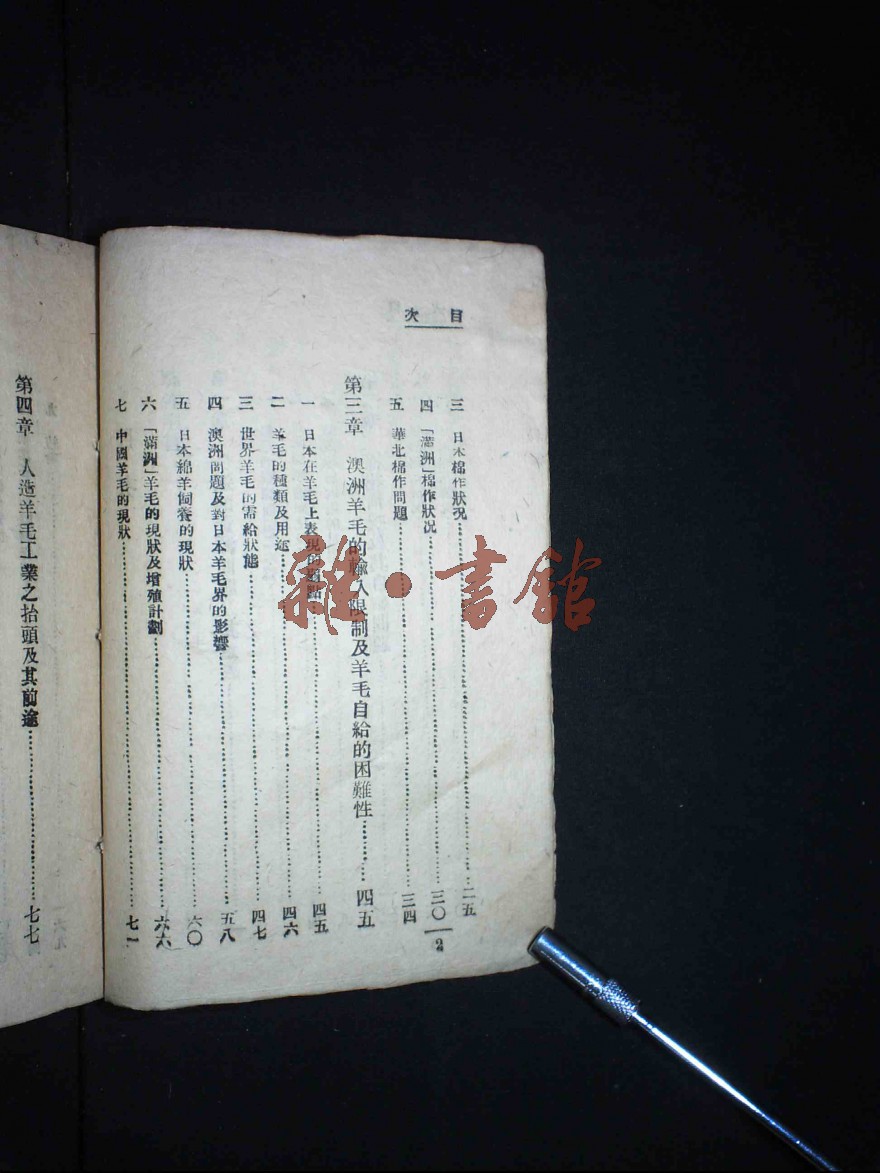 目次
三 日本棉作狀況……二五
四 「滿洲」棉作狀況……三〇
五 華北棉作問題……三四
第三章 澳洲羊毛的輸入限制及羊毛自給的困難性……四五
一 日本在羊毛上表現的弱點……四五
二 羊毛的種類及用途……四六
三 世界羊毛的需給狀態……四七
四 澳洲問題及對日本羊毛界的影響……五八
五 日本綿羊飼養的現狀……六〇
六 「滿洲」羊毛的現狀及增殖計劃……六六
七 中國羊毛的現狀……七一
2
第四章 人造羊毛工業之抬頭及其前途……七七
雜·書館